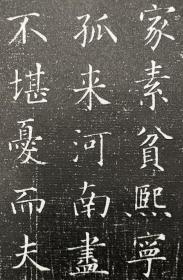 家素貧熙寧
孤来河南盡
不堪憂而夫